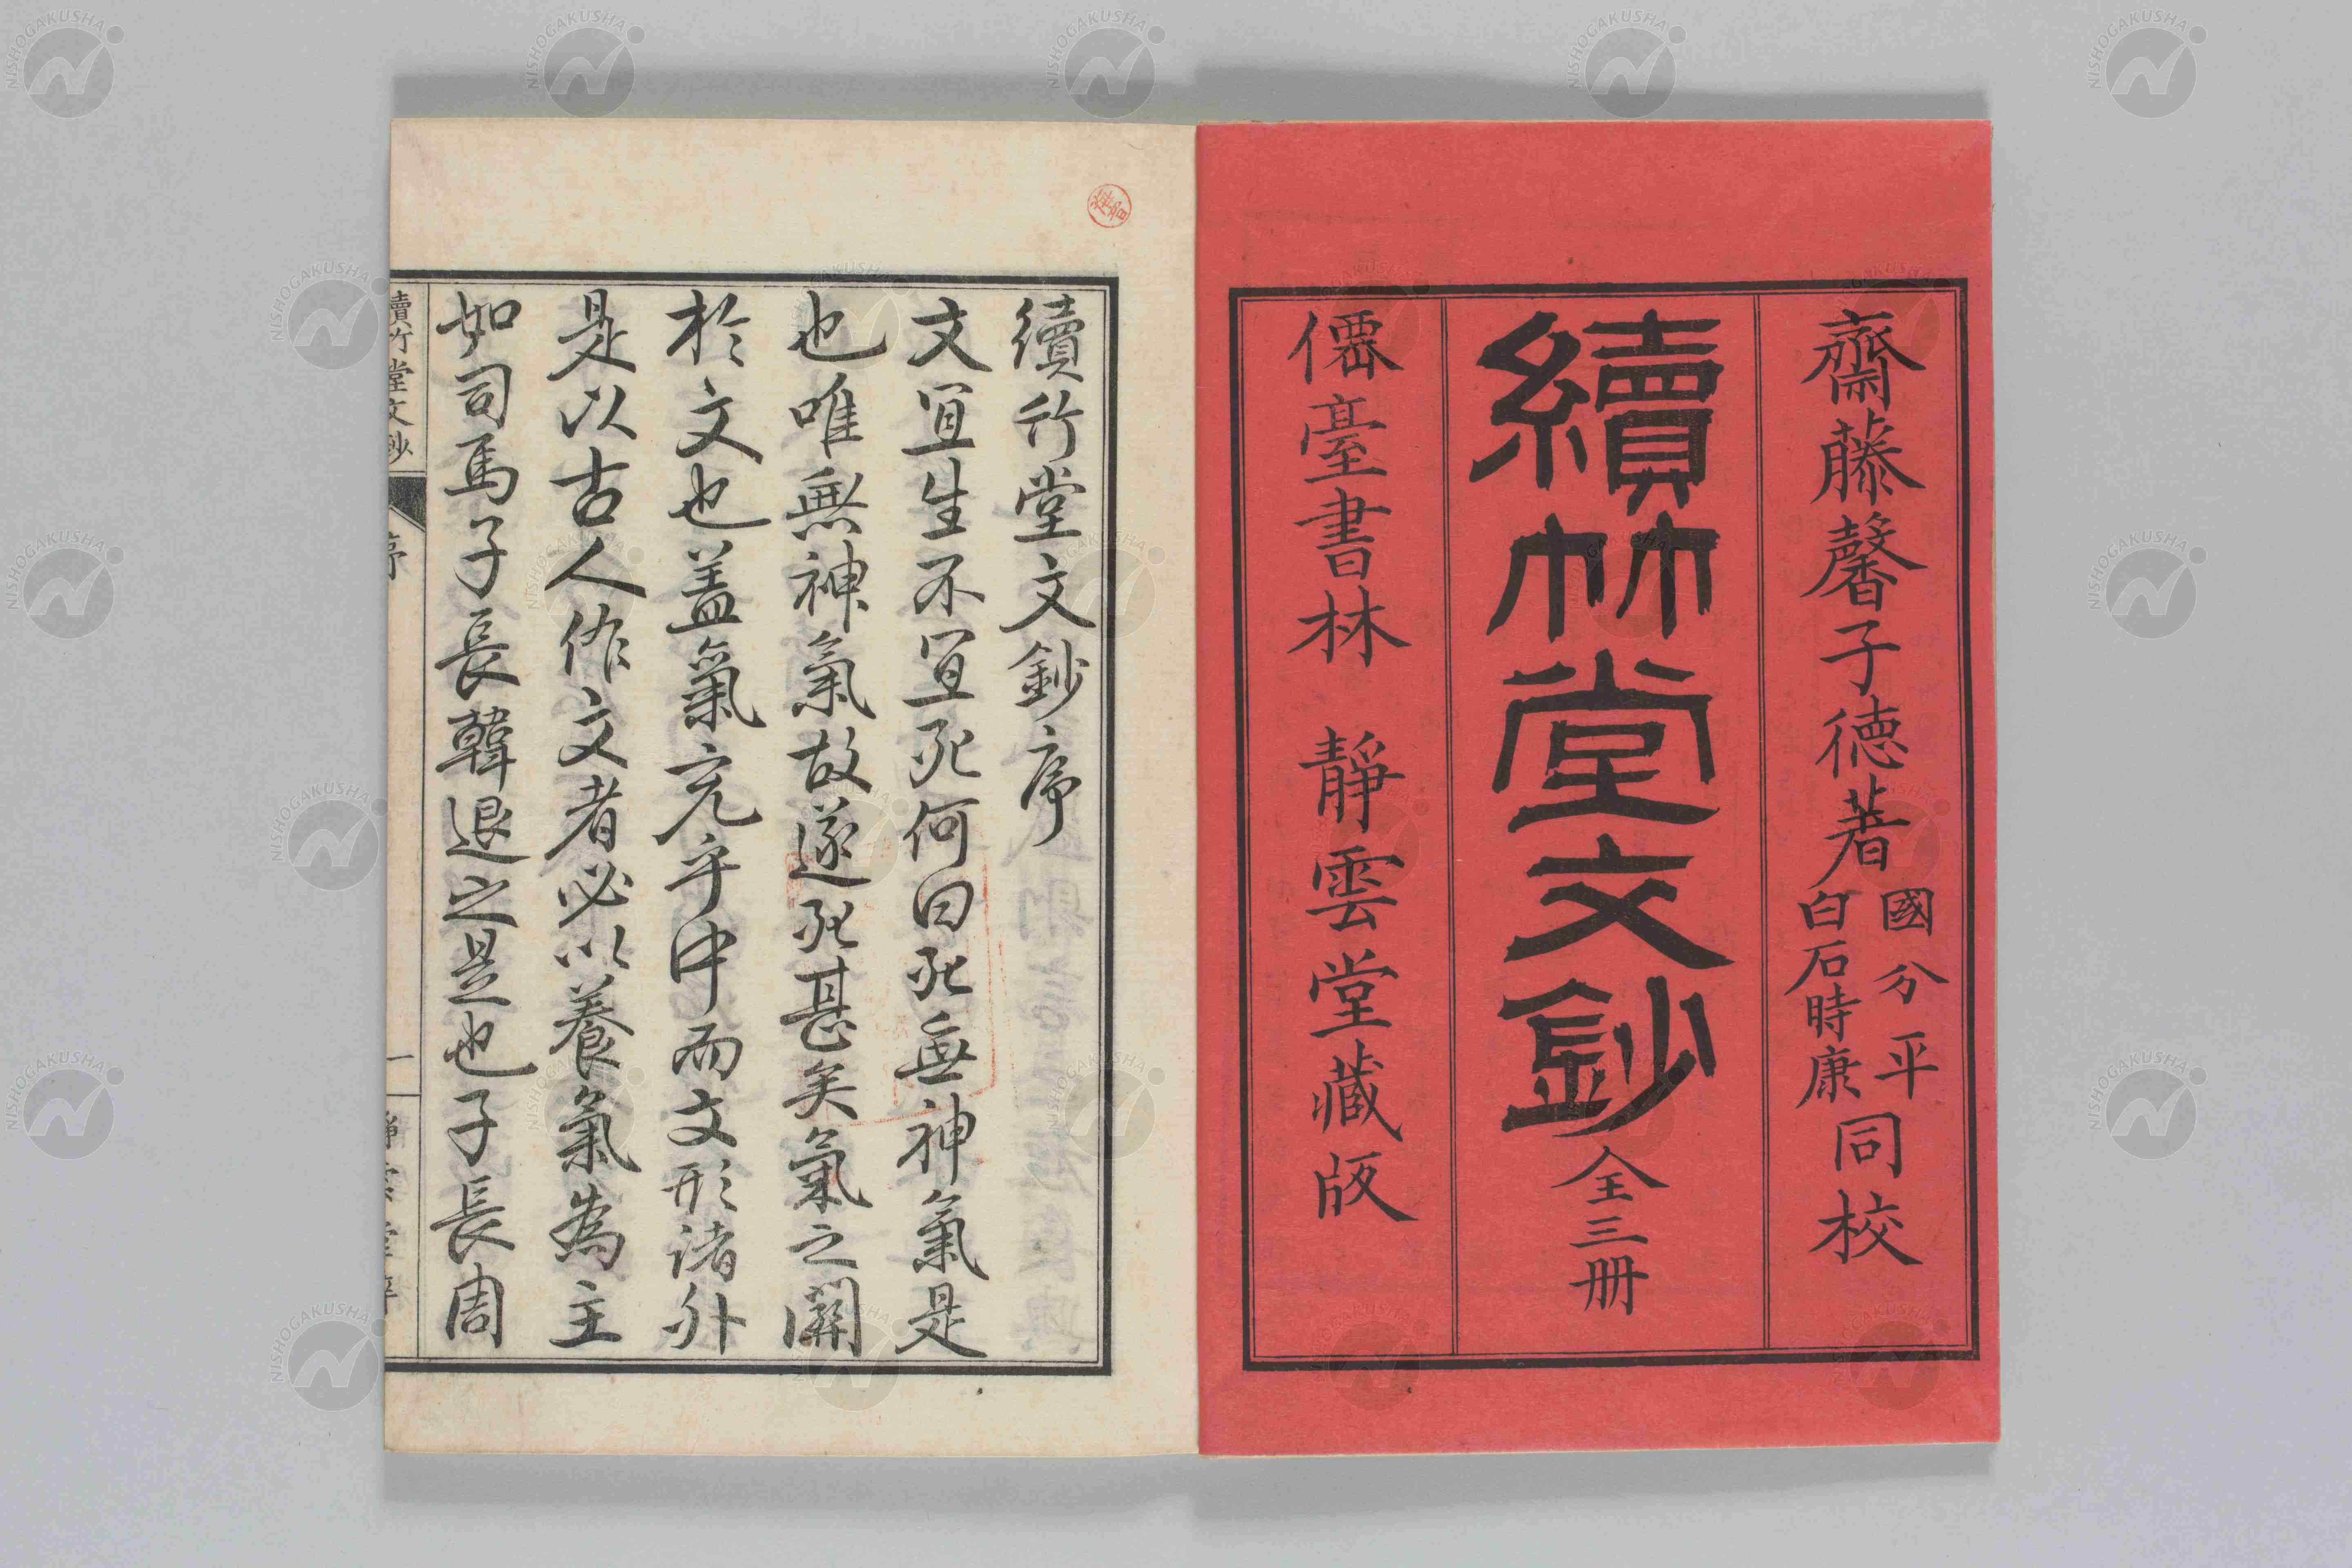 齋藤馨子徳著 國分平 白石時康 同校
續竹堂文鈔 全三冊
僊臺書林 靜雲堂藏版
續竹堂文鈔序
文冝生不冝死何曰死無神氣是
也唯無神氣故遂死甚矣氣之關
於文也盖氣充乎中而文形諸外
是以古人作文者必以養氣為主
如司馬子長韓退之是也子長周
續竹堂文鈔 序 一
NISHOGAKUSHA